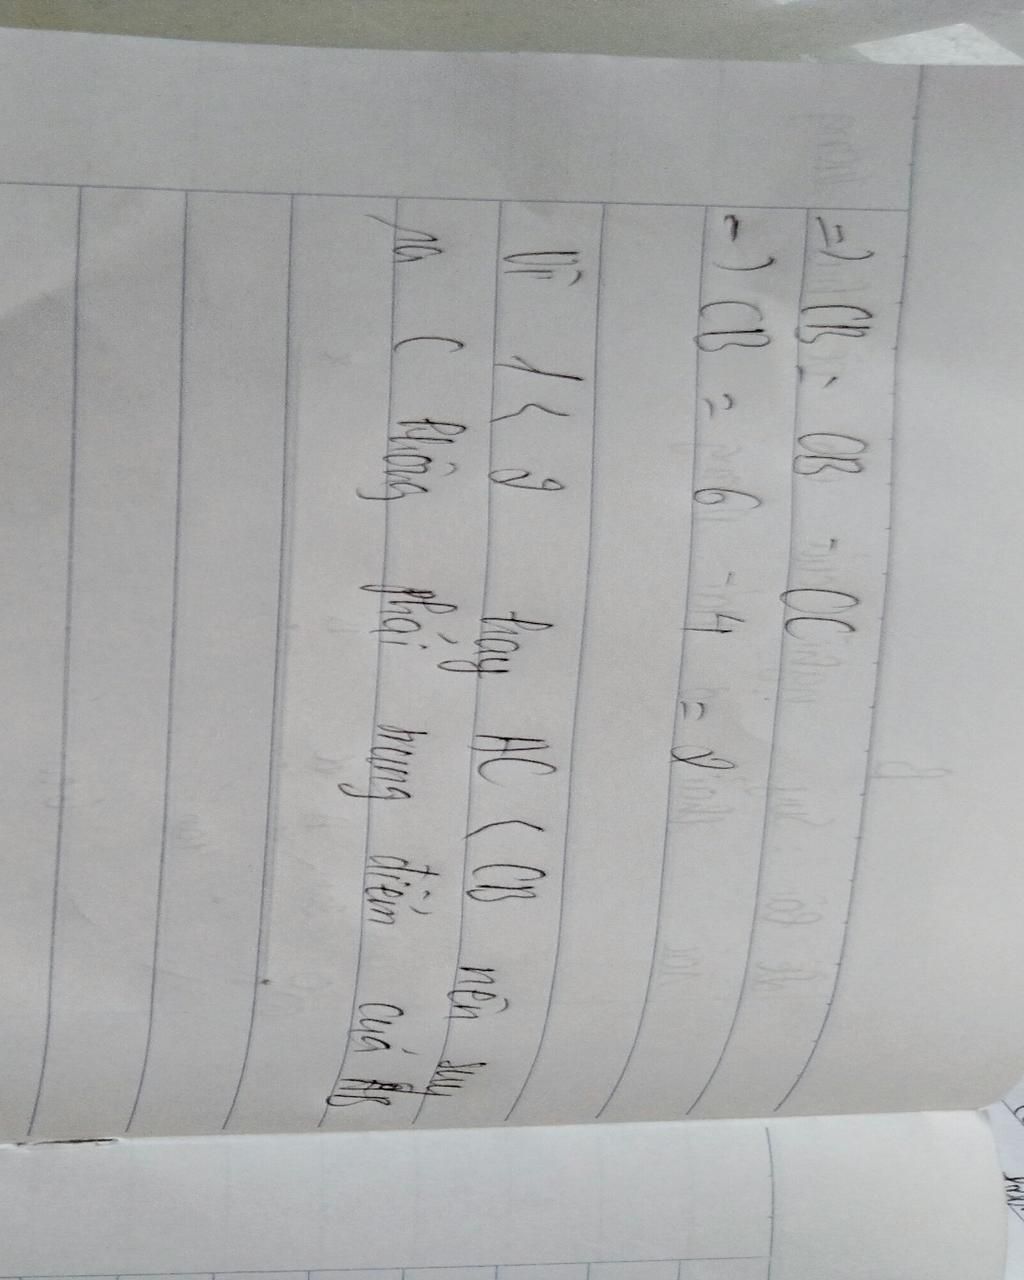 => CB = OB - OC
=> CB = 6 - 4 = 2
Vì 1 < 2 hay AC < CB nên suy
ra C không phải trung điểm của AB